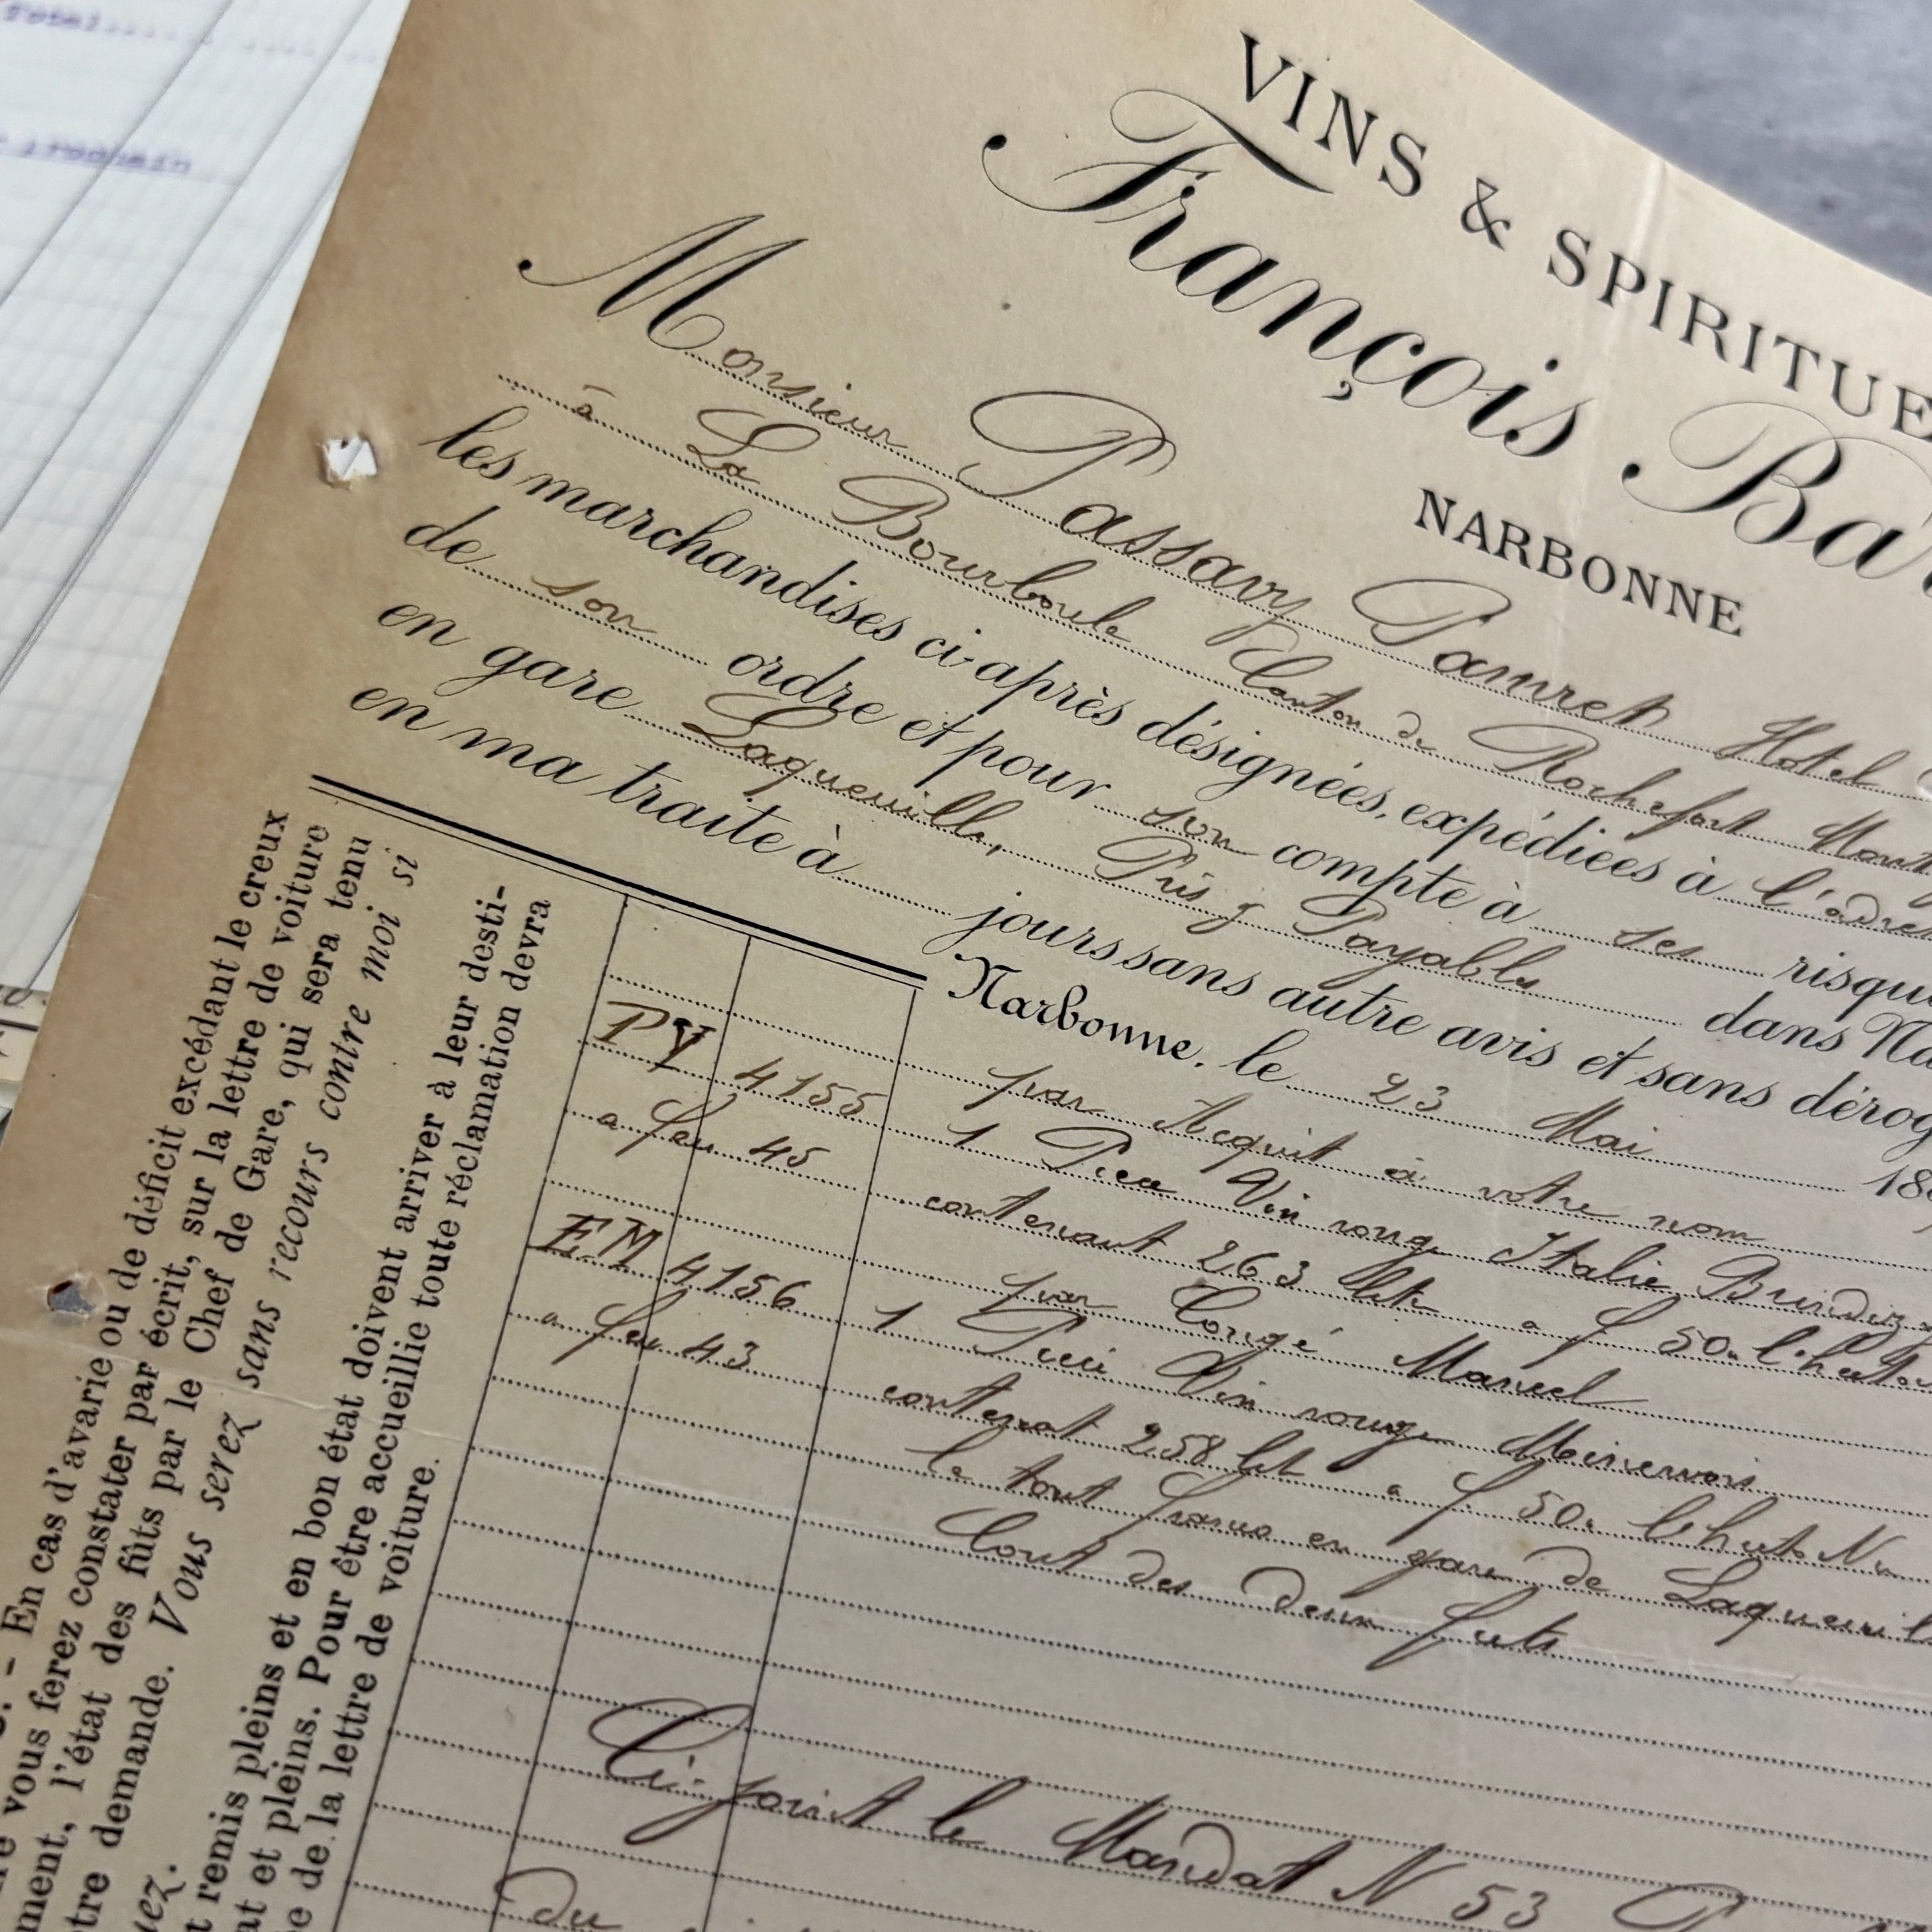 VINS & SPIRITUE
François Ba
NARBONNE
Monsieur Passavy Pauret Hotel
à La Bourboule Canton de Rochefort Mont
les marchandises ci-après désignées, expédiées à l'adres
de son ordre et pour son compte à ses risqu
en gare Laqueuille, Prix Payable dans Na
en ma traite à jours sans autre avis et sans dérog
Narbonne, le 23 Mai 18
par Acquit à votre nom
PV 4155 1 Vin rouge Italie Brindizi
a feu 45 contenant 263 lit a f 50. l'hecto
par Congé Manuel
EM 4156 1 Vin rouge Minervois
a feu 43 contenat 258 lit a f. 50. l'hecto Nu
le tout franco en gare de Laqueuil
Cout des deux futs
Ci-joint le Mandat N 53
du
En cas d'avarie ou de déficit excédant le creux
vous ferez constater par écrit, sur la lettre de voiture
ment, l'état des fûts par le Chef de Gare, qui sera tenu
tre demande. Vous serez sans recours contre moi si
uez.
t remis pleins et en bon état doivent arriver à leur desti-
at et pleins. Pour être accueillie toute réclamation devra
e de la lettre de voiture.